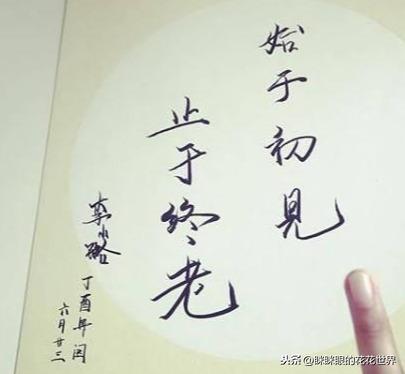 始于初見
止于终老
李小璐
丁酉年闰
六月廿三
头条@眯眯眼的花花世界